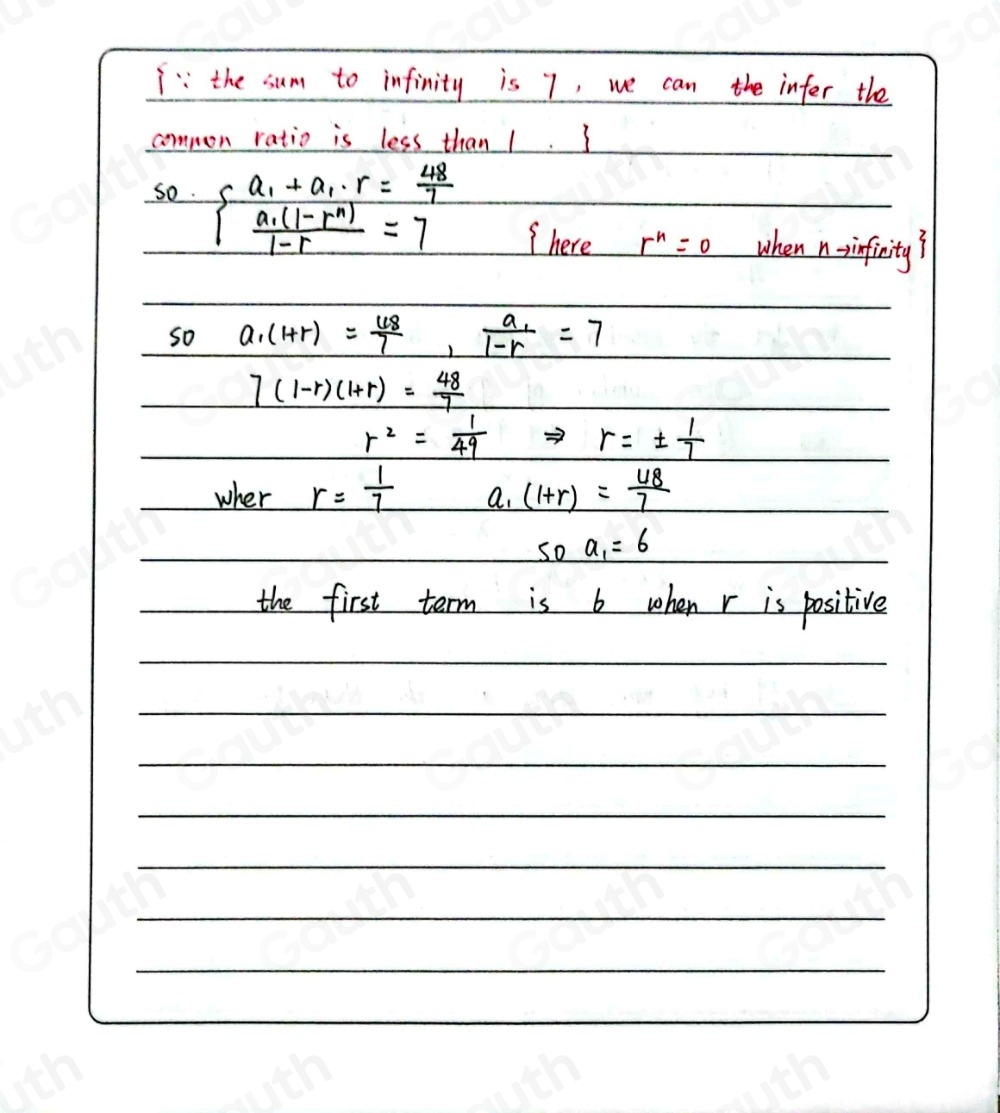 {∵ the sum to infinity is 7, we can the infer the
common ratio is less than 1 . }
so. { a₁ + a₁·r = 48/7
a₁(1-rⁿ)/1-r = 7 { here rⁿ = 0 when n→infinity}
so a₁(1+r) = 48/7 , a₁/1-r = 7
7(1-r)(1+r) = 48/7
r² = 1/49 ⇒ r = ± 1/7
wher r = 1/7 a₁(1+r) = 48/7
so a₁= 6
the first term is 6 when r is positive
Gauth